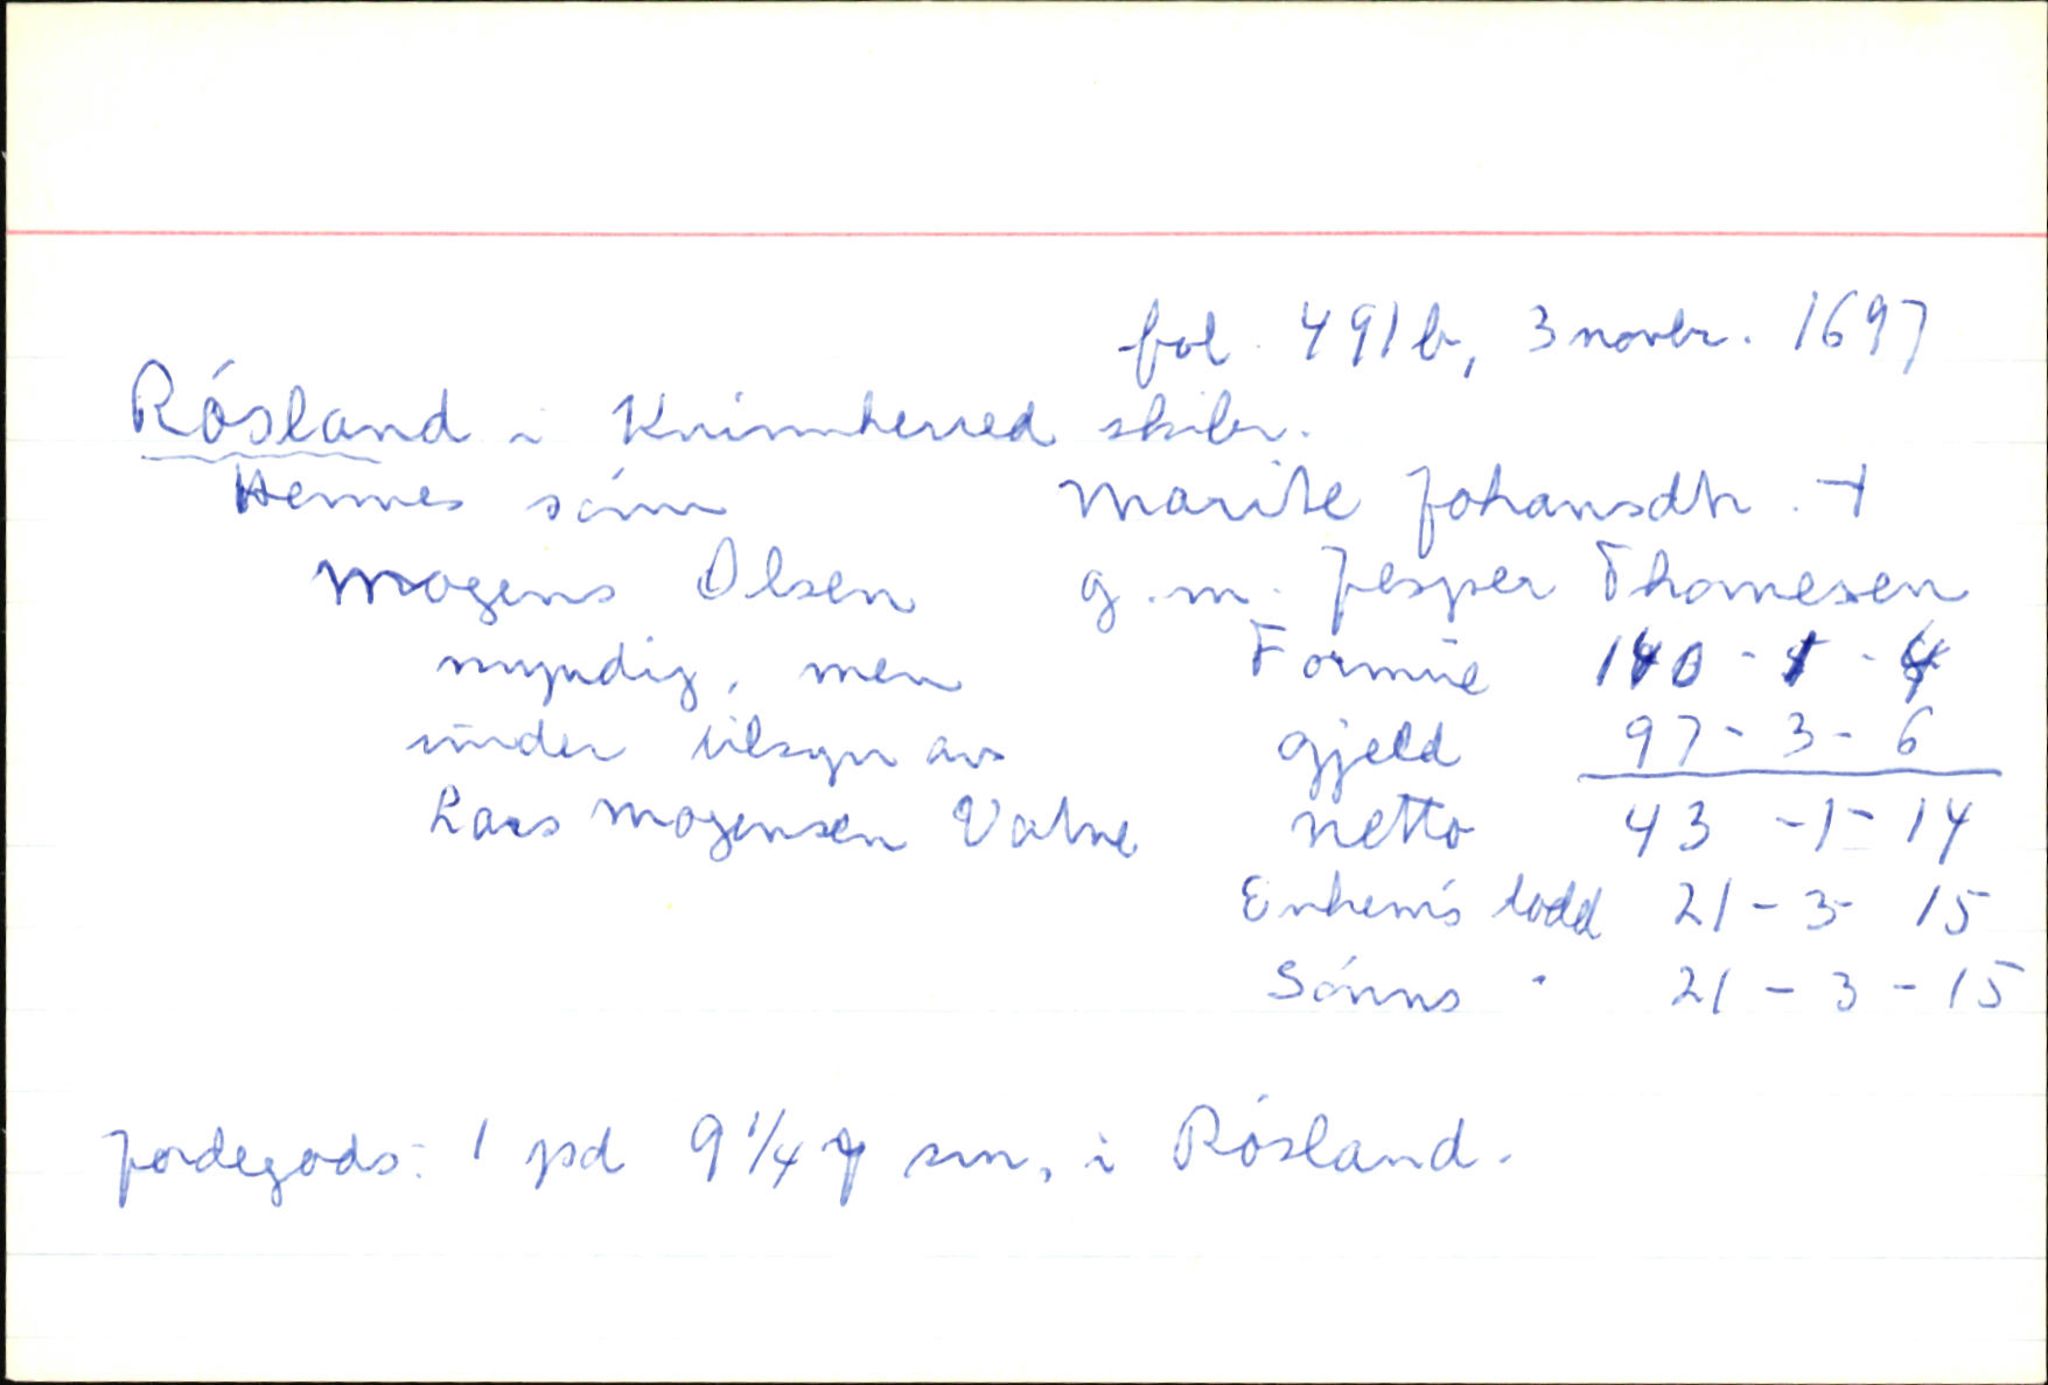 fol. 491b, 3 novbr. 1697
Rósland i Kvinnherred skibr.
Hennes sónn Marite Johansdtr. †
Mogens Olsen g.m. Jesper Thomesen
myndig, men Formue 140 - 1 - 4
under tilsyn av gjeld 97 - 3 - 6
Lars Mogensen Valne netto 43 - 1 - 14
Enkem's lodd 21 - 3 - 15
Sónns " 21 - 3 - 15
Jordegods: 1 pd 9 1/4 sm. i Rósland.